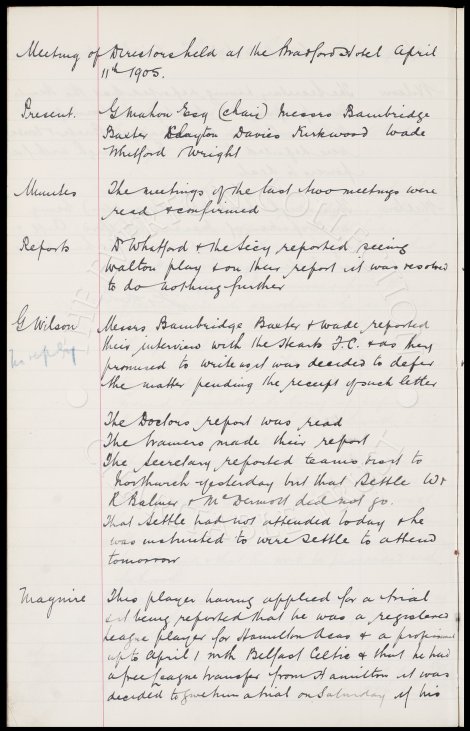 Meeting of Directors held at the Bradford Hotel April
11th 1905.
Present. G Mahon Esq (chair) Messrs Bambridge
Baxter Clayton Davies Kirkwood Wade
Whitford Wright
Minutes The meetings of the last two meetings were
read & confirmed
Reports Dr Whitford & the Secy reported seeing
Walton play & on their report it was resolved
to do nothing further
G Wilson Messrs Bambridge Baxter & Wade, reported
their interview with the Hearts F.C. & as they
promised to write us it was decided to defer
the matter pending the receipt of such letter
no reply
The Doctors report was read
The trainers made their report
The Secretary reported teams visit to
Northwich yesterday but that Settle W &
R Balmer & McDermott did not go.
That Settle had not attended today & he
was instructed to wire Settle to attend
tomorrow
Maguire This player having applied for a trial
& it being reported that he was a registered
league player for Hamilton Acas &
up to April 1 with Belfast Celtic & that he had
a free league transfer from Hamilton it was
decided to give him a trial on Saturday if his